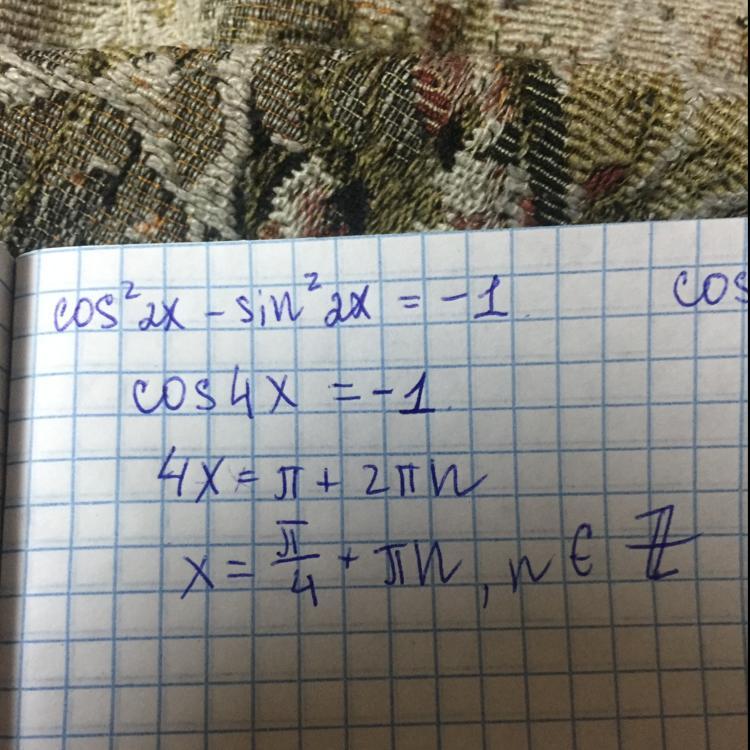 cos²2x - sin²2x = -1 cos
cos4x = -1
4x = π + 2πn
x = π/4 + πn, n ∈ ℤ